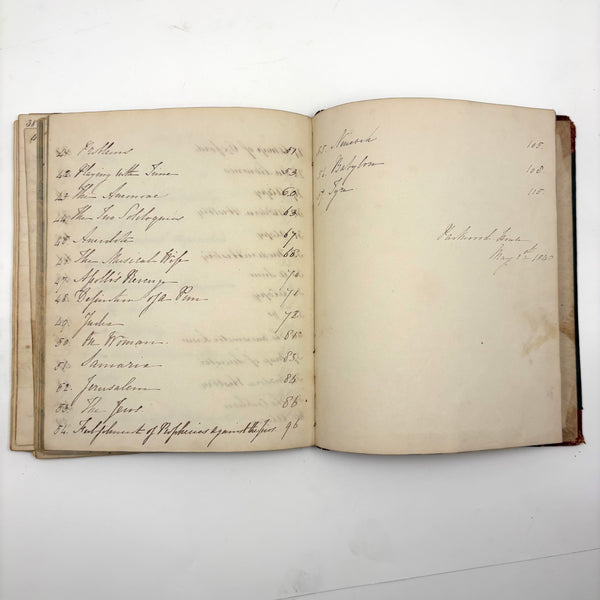 42. Playing with Time 53
43. The Anemone 60
44. The Two Soliloquies 63
45. Anecdote 67
46. The Musical Wife 68
47. Apollo's Revenge 70
48. Definition of a Pun 71
49. Judea 72
50. On Woman
51. Samaria 83
52. Jerusalem 84
53. The Jews 86
54. Fulfilment of Prophecies against the Jews 96
55. Nineveh 105
56. Babylon 108
57. Tyre 115